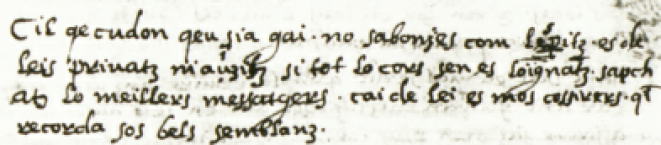 Cil qe cudon qeu sia gai · no sabon ges com lesperitz · es de
leis privatz ni aysitz si tot lo cors sen es loignatz · sapch
atz lo meillers messatgers · cai de lei es mos cossirers · qem
recorda sos bels semblanz ·